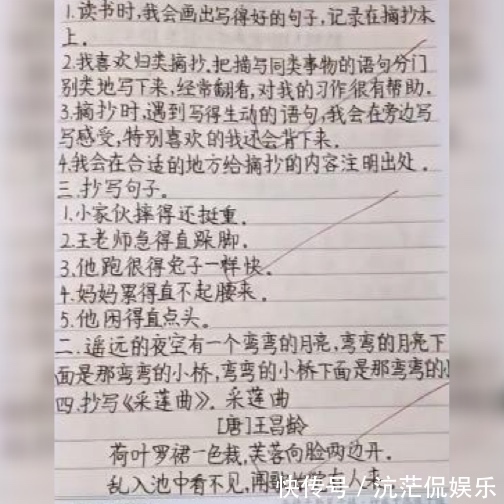 1.读书时,我会画出写得好的句子,记录在摘抄本
上.
2.我喜欢归类摘抄.把描写同类事物的语句分门
别类地写下来,经常翻看,对我的习作很有帮助.
3.摘抄时,遇到写得生动的语句,我会在旁边写
写感受,特别喜欢的我还会背下来.
4.我会在合适的地方给摘抄的内容注明出处.
三.抄写句子.
1.小家伙摔得还挺重.
2.王老师急得直跺脚.
3.他跑很得兔子一样快.
4.妈妈累得直不起腰来.
5.他困得直点头。
二.遥远的夜空有一个弯弯的月亮,弯弯的月亮下
面是那弯弯的小桥,弯弯的小桥下面是那弯弯的
四.抄写《采莲曲》. 采莲曲
[唐]王昌龄
荷叶罗裙一色裁,芙蓉向脸两边开.
乱入池中看不见,闻歌
快传号/沆茫侃娱乐